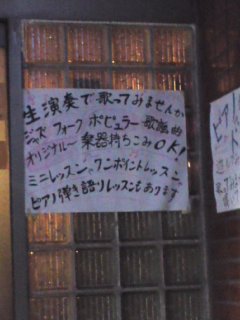 生演奏で歌ってみませんか
ジャズ フォーク ポピュラー 歌謡曲
オリジナル— 楽器持ちこみOK!
ミニレッスン、ワンポイントレッスン
ピアノ弾き語りレッスンもあります
ピアノ